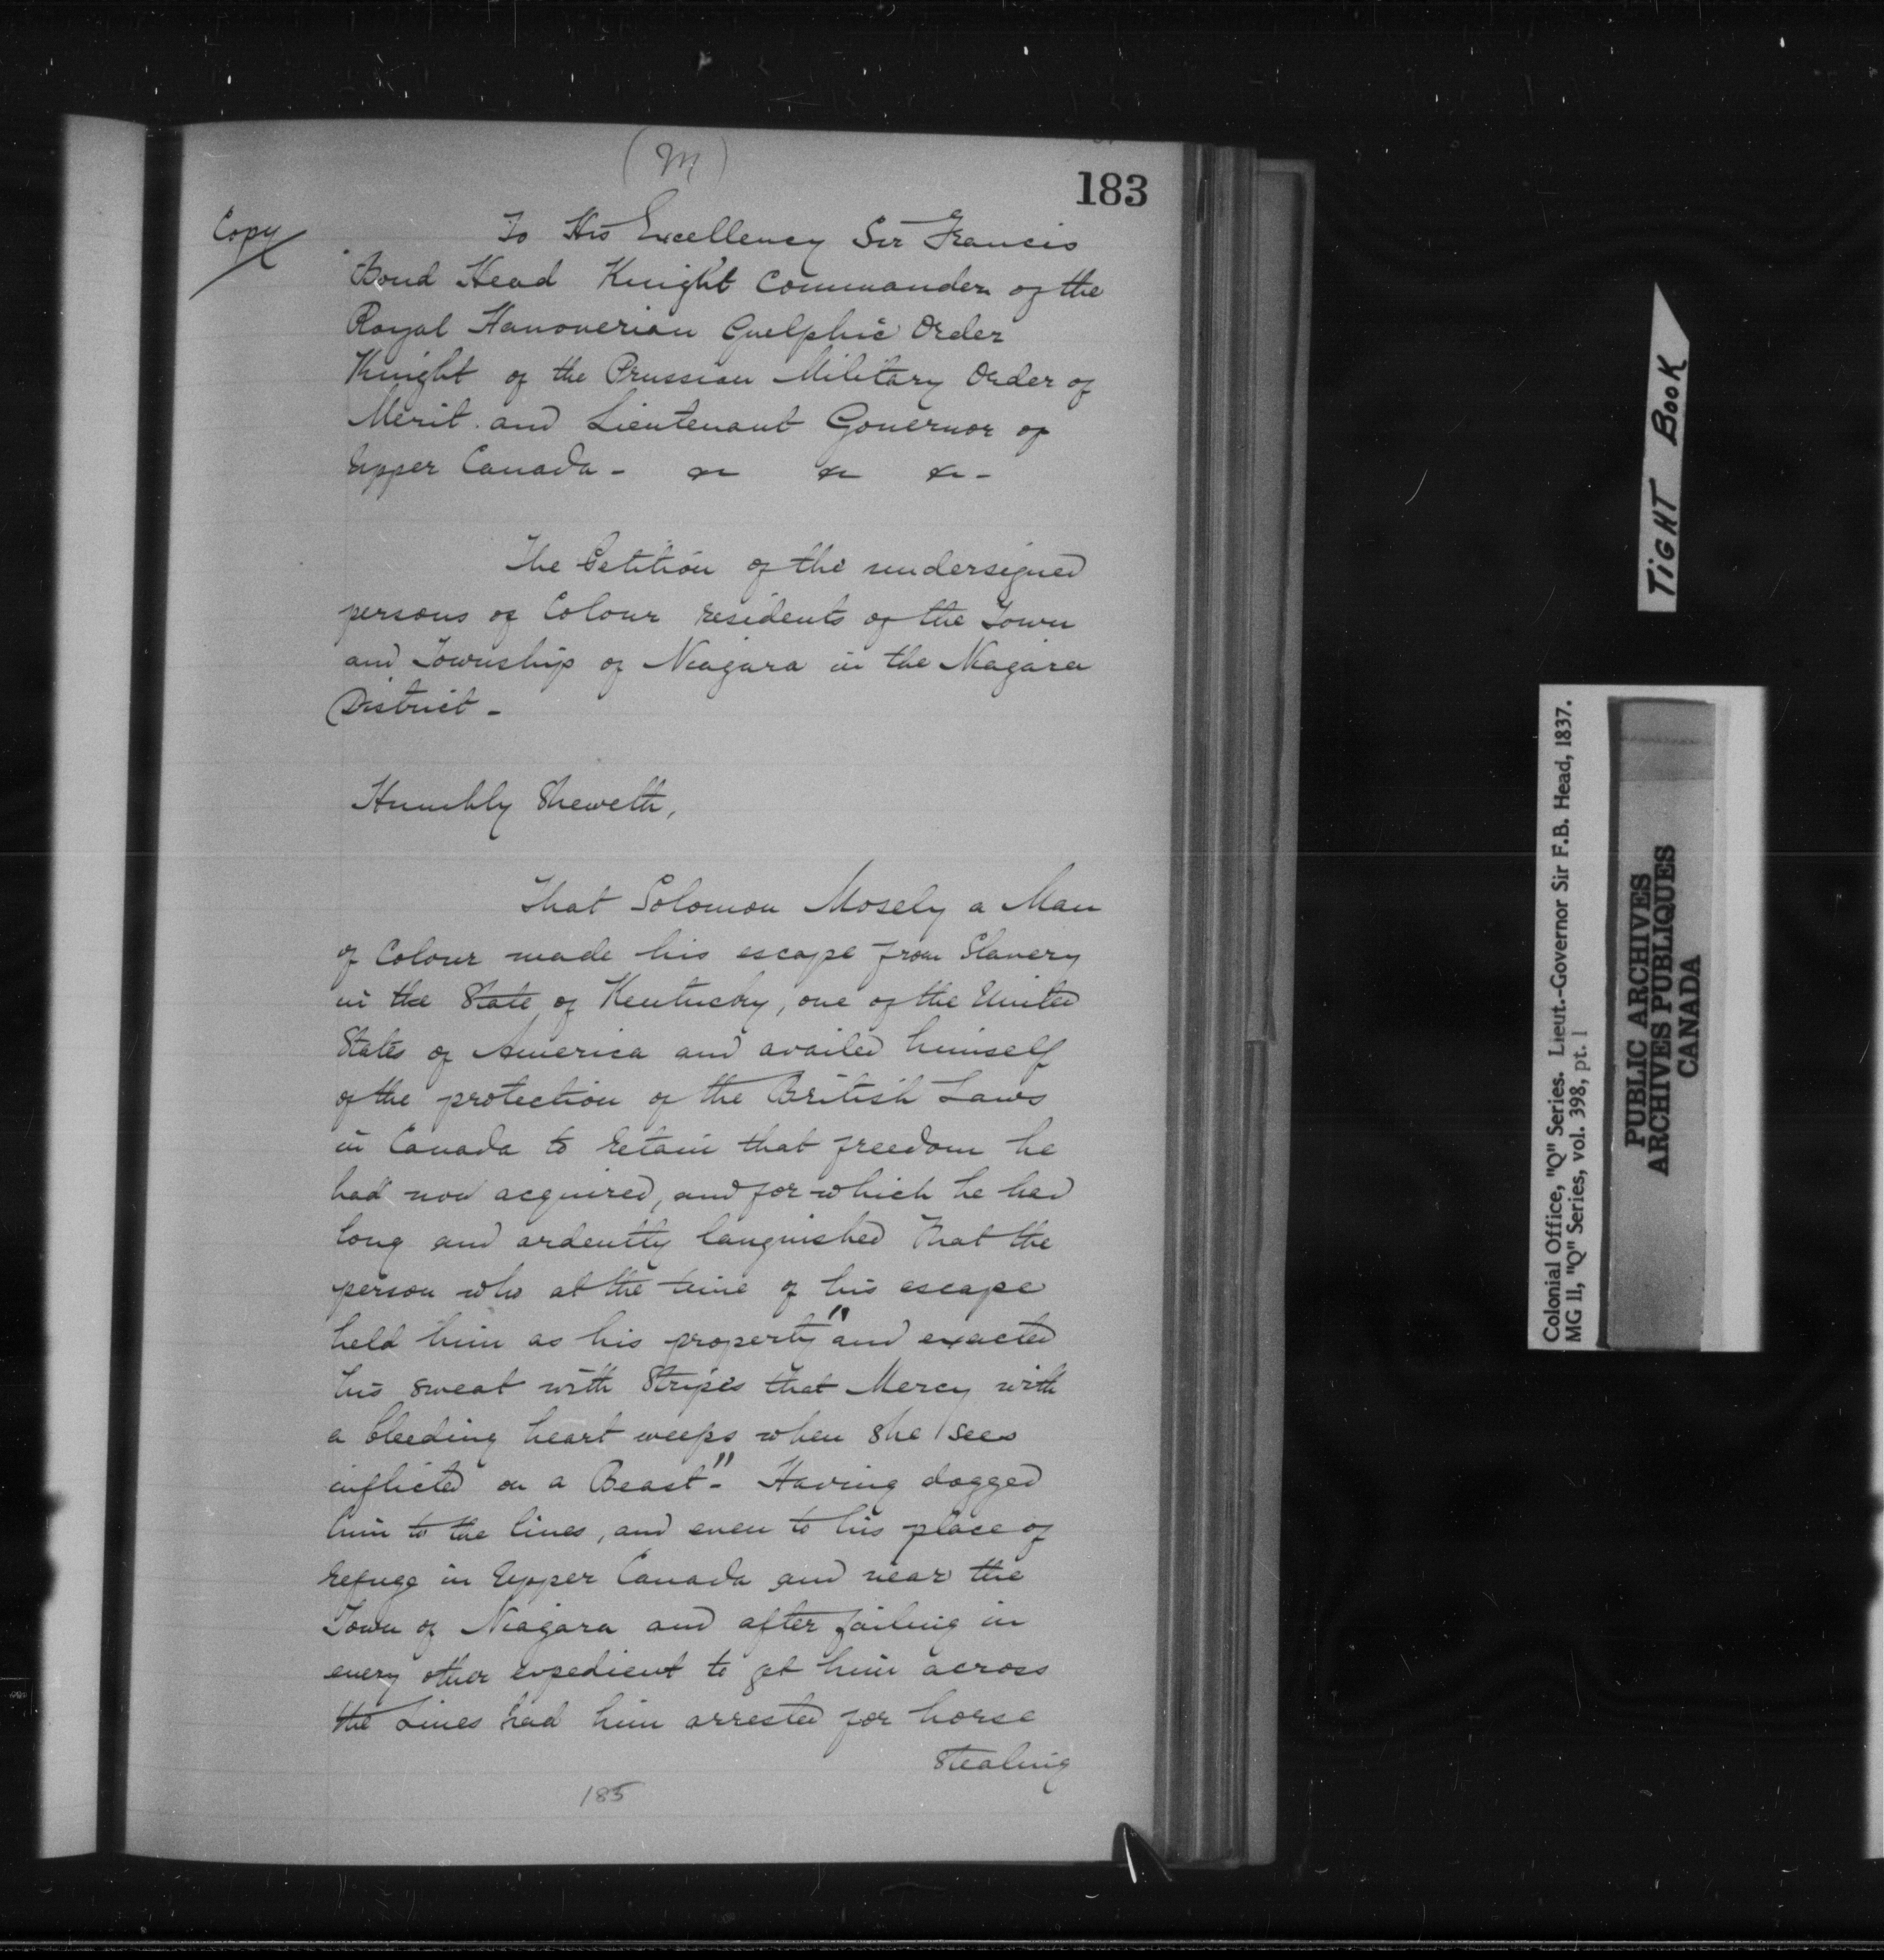 (M)
183
Copy
To His Excellency Sir Francis
Bond Head Knight Commander of the
Royal Hanoverian Guelphic Order
Knight of the Prussian Military Order of
Merit and Lieutenant Governor of
Upper Canada - &c &c &c -
The Petition of the undersigned
persons of Colour residents of the Town
and Township of Niagara in the Niagara
District -
Humbly Sheweth,
That Solomon Mosely a Man
of Colour made his escape from Slavery
in the State of Kentucky, one of the United
States of America and availed himself
of the protection of the British Laws
in Canada to retain that freedom he
had now acquired, and for which he had
long and ardently languished That the
person who at the time of his escape
held him as his property "and exacted
his sweat with Stripes that Mercy with
a bleeding heart weeps when she sees
inflicted on a Beast". Having dogged
him to the lines, and even to his place of
refuge in Upper Canada and near the
Town of Niagara and after failing in
every other expedient to get him across
the Lines had him arrested for horse
Stealing
185
TIGHT BOOK
Colonial Office, "Q" Series. Lieut.-Governor Sir F.B. Head, 1837.
MG 11, "Q" Series, vol. 398, pt. 1
PUBLIC ARCHIVES
ARCHIVES PUBLIQUES
CANADA